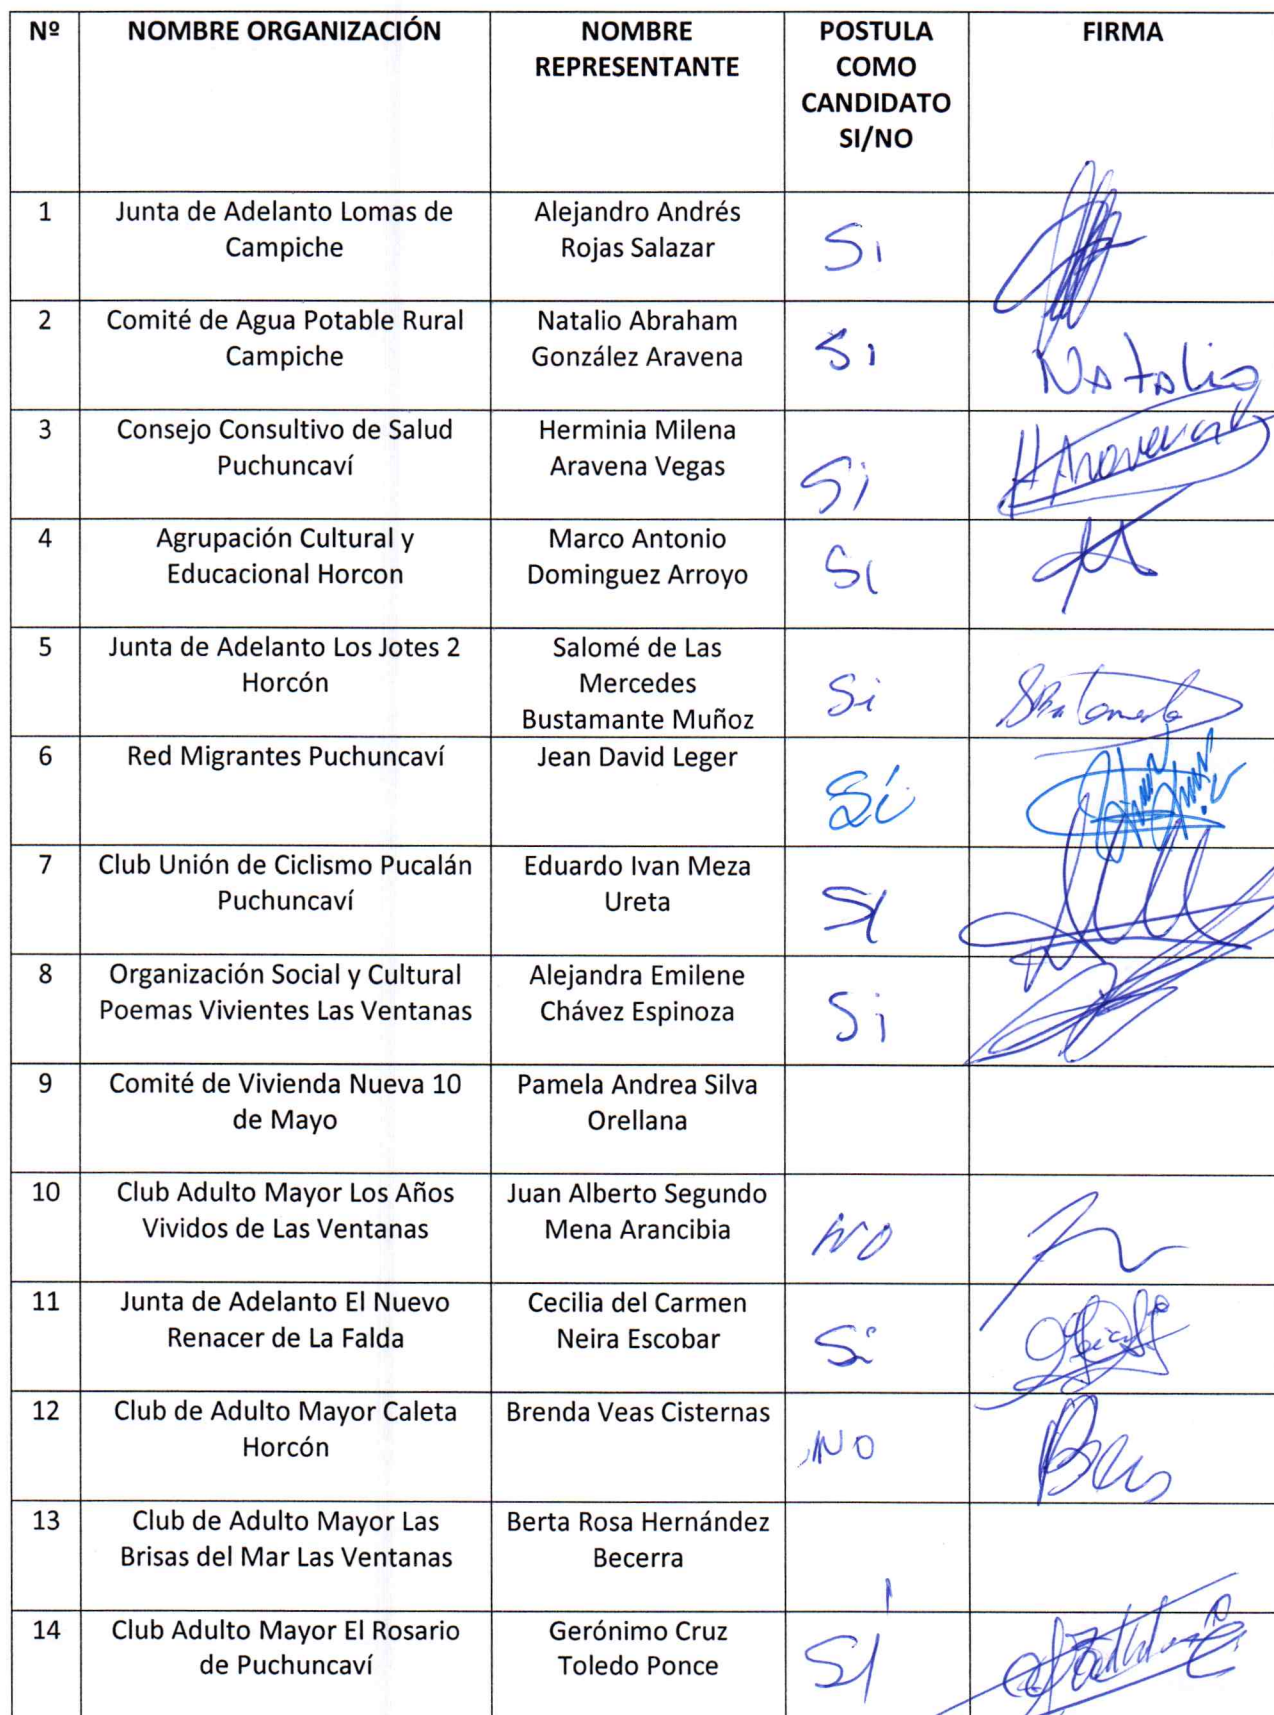 Nº NOMBRE ORGANIZACIÓN NOMBRE REPRESENTANTE POSTULA COMO CANDIDATO SI/NO FIRMA
1 Junta de Adelanto Lomas de Campiche Alejandro Andrés Rojas Salazar Si
2 Comité de Agua Potable Rural Campiche Natalio Abraham González Aravena Si Natalio
3 Consejo Consultivo de Salud Puchuncaví Herminia Milena Aravena Vegas Si H Aravena
4 Agrupación Cultural y Educacional Horcon Marco Antonio Dominguez Arroyo Si
5 Junta de Adelanto Los Jotes 2 Horcón Salomé de Las Mercedes Bustamante Muñoz Si
6 Red Migrantes Puchuncaví Jean David Leger Sí
7 Club Unión de Ciclismo Pucalán Puchuncaví Eduardo Ivan Meza Ureta SI
8 Organización Social y Cultural Poemas Vivientes Las Ventanas Alejandra Emilene Chávez Espinoza Si
9 Comité de Vivienda Nueva 10 de Mayo Pamela Andrea Silva Orellana
10 Club Adulto Mayor Los Años Vividos de Las Ventanas Juan Alberto Segundo Mena Arancibia NO
11 Junta de Adelanto El Nuevo Renacer de La Falda Cecilia del Carmen Neira Escobar Si
12 Club de Adulto Mayor Caleta Horcón Brenda Veas Cisternas NO
13 Club de Adulto Mayor Las Brisas del Mar Las Ventanas Berta Rosa Hernández Becerra
14 Club Adulto Mayor El Rosario de Puchuncaví Gerónimo Cruz Toledo Ponce SI